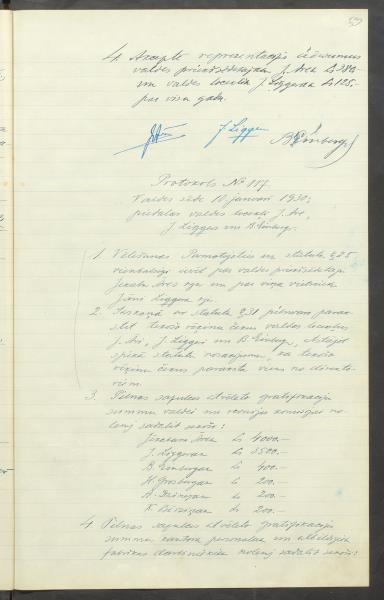 59
4. Akceptē reprezentācijas izdevumus
valdes priekšsēdētājam J. Ārea Ls 380.-
un valdes loceklim J. Liggeram Ls 125.-
par visu gadu.
J. Ligger
B. Einberg
Protokols No 117.
Valdes sēde 10. janvārī 1930.;
piedalās valdes locekļi J.
J. Liggers un B. Einberg.
1. Vēlēšanas. Pamatojoties uz statūtu § 25
vienbalsīgi ievēl par valdes priekšsēdētāju
un par viņa vietnieku
Jāni Liggeru
2. Saskaņā ar statūtu § 31 pilnvaro paraks-
tīt tekošo rēķinu čekus valdes locekļus
J. J. Liggeri un B. Einberg, atstājot
spēkā statūtu norādījumu, ka tekošo
rēķinu čekus paraksta viens no direkto-
riem.
3. Pilnas sapulces atvēlēto gratifikācijas
summu valdei un revīzijas komisijai no-
lemj sadalīt sekoši:
Ls 4000.-
J. Liggeram Ls 3500.-
B. Einbergam Ls 400.-
H. Grosbergam Ls 200.-
A. Ls 200.-
K. Ls 200.-
4. Pilnas sapulces atvēlēto gratifikācijas
summu kantora personālam un atbildīgiem
fabrikas darbiniekiem nolemj sadalīt sekoši: